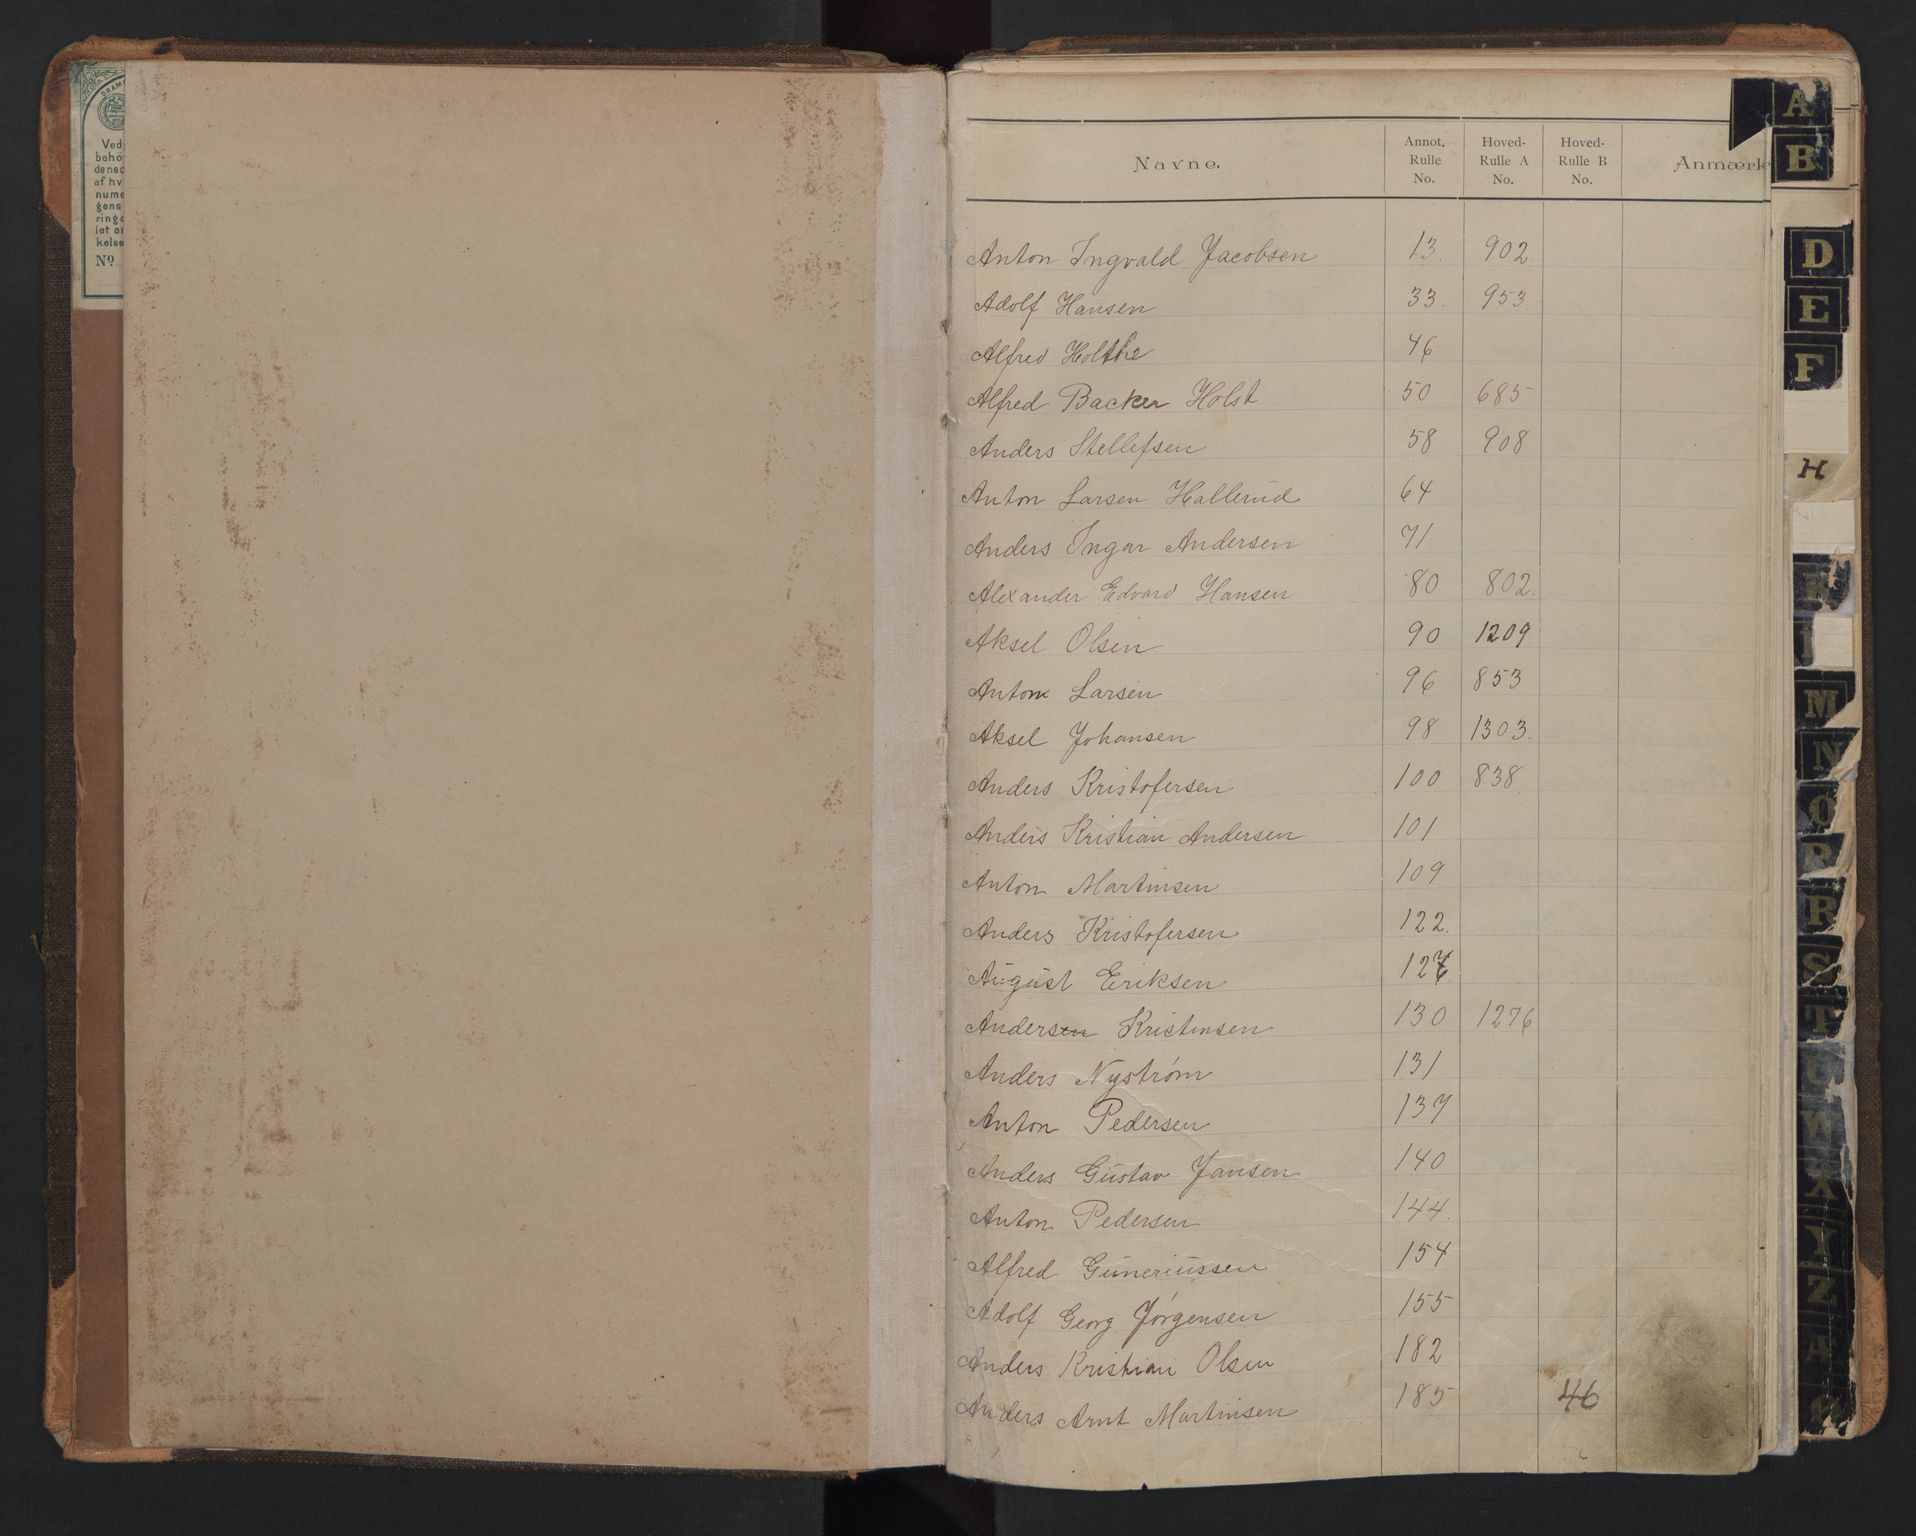 DRAM
Ved
behöv
dened
af hv
nume
gens
ringd
let an
kelse
No
Navne. Annot. Rulle No. Hoved-Rulle A No. Hoved-Rulle B No. Anmærk
Anton Ingvald Jacobsen 13. 902.
Adolf Hansen 33. 953.
Alfred Holthe 46
Alfred Backer Holst 50 685
Anders Stellefsen 58 908
Anton Larsen Hallerud 64
Anders Ingar Andersen 71
Alexander Edvard Hansen 80 802.
Aksel Olsen 90 1209
Anton Larsen 96 853
Aksel Johansen 98 1303.
Anders Kristofersen 100 838
Anders Kristian Andersen 101
Anton Martinsen 109
Anders Kristofersen 122.
August Eriksen
Andersen Kristensen 130 1276
Anders Nyström 131
Anton Pedersen 137
Anders Gustav Jansen 140
Anton Pedersen 144.
Alfred Guneriussen 154
Adolf Georg Jørgensen 155
Anders Kristian Olsen 182
Anders Arnt Martinsen 185 46
A
B
D
E
F
H
K
M
N
O
P
R
S
T
U
W
X
Y
Z